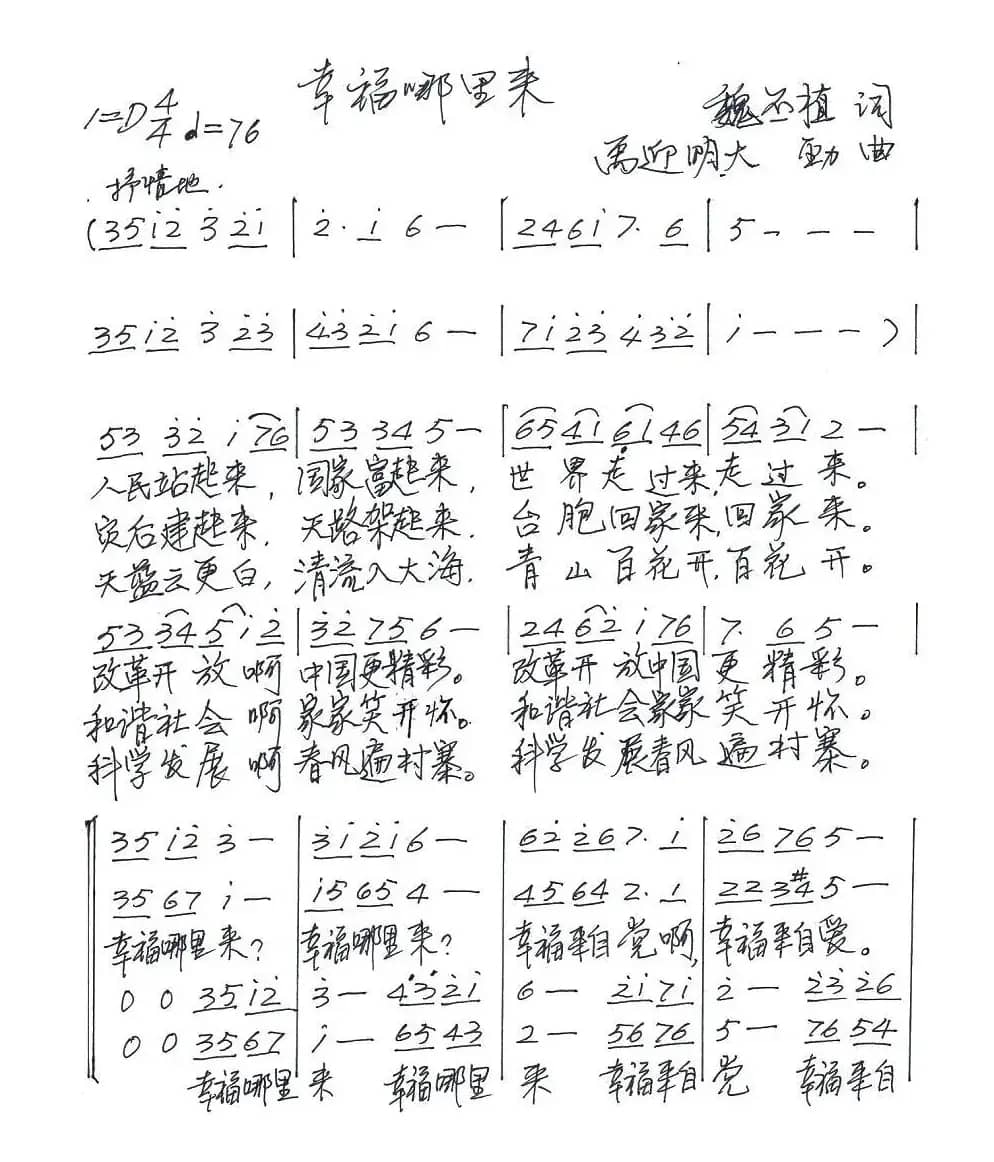 幸福哪里来
1=D 4/4 d=76
魏丕植 词
禹迎明 大 劲 曲
抒情地.
(35 i̇2̇ 3̇ 2̇i̇ | 2̇· i̇ 6 — | 24 6i̇ 7· 6 | 5 — — — |
35 i̇2̇ 3̇ 2̇3̇ | 4̇3̇ 2̇i̇ 6 — | 7i̇ 2̇3̇ 4̇ 3̇2̇ | i̇ — — — ) |
53 3̇2̇ i̇ 76 | 53 34 5 — | 65 41 61 46 | 54 31 2 — |
人民站起来, 国家富起来, 世界走过来,走过来。
灾后建起来, 天路架起来. 台胞回家来,回家来。
天蓝云更白, 清流入大海. 青山百花开,百花开。
53 34 5 i̇ 2̇ | 3̇2̇ 75 6 — | 24 62̇ i̇ 76 | 7· 6 5 — |
改革开放啊 中国更精彩。 改革开放中国更精彩。
和谐社会啊 家家笑开怀。 和谐社会家家笑开怀。
科学发展啊 春风遍村寨。 科学发展春风遍村寨。
35 i̇2̇ 3̇ — | 3̇i̇ 2̇i̇ 6 — | 62̇ 2̇6 7· i̇ | 2̇6 76 5 — |
35 67 i̇ — | i̇5 65 4 — | 45 64 2· 1 | 22 3#4 5 — |
幸福哪里来? 幸福哪里来? 幸福来自党啊, 幸福来自爱。
0 0 35 i̇2̇ | 3̇ — 4̇3̇ 2̇i̇ | 6 — 2̇i̇ 7i̇ | 2̇ — 2̇3̇ 2̇6
0 0 35 67 | i̇ — 65 43 | 2 — 56 76 | 5 — 76 54
幸福哪里 来 幸福哪里 来 幸福来自 党 幸福来自